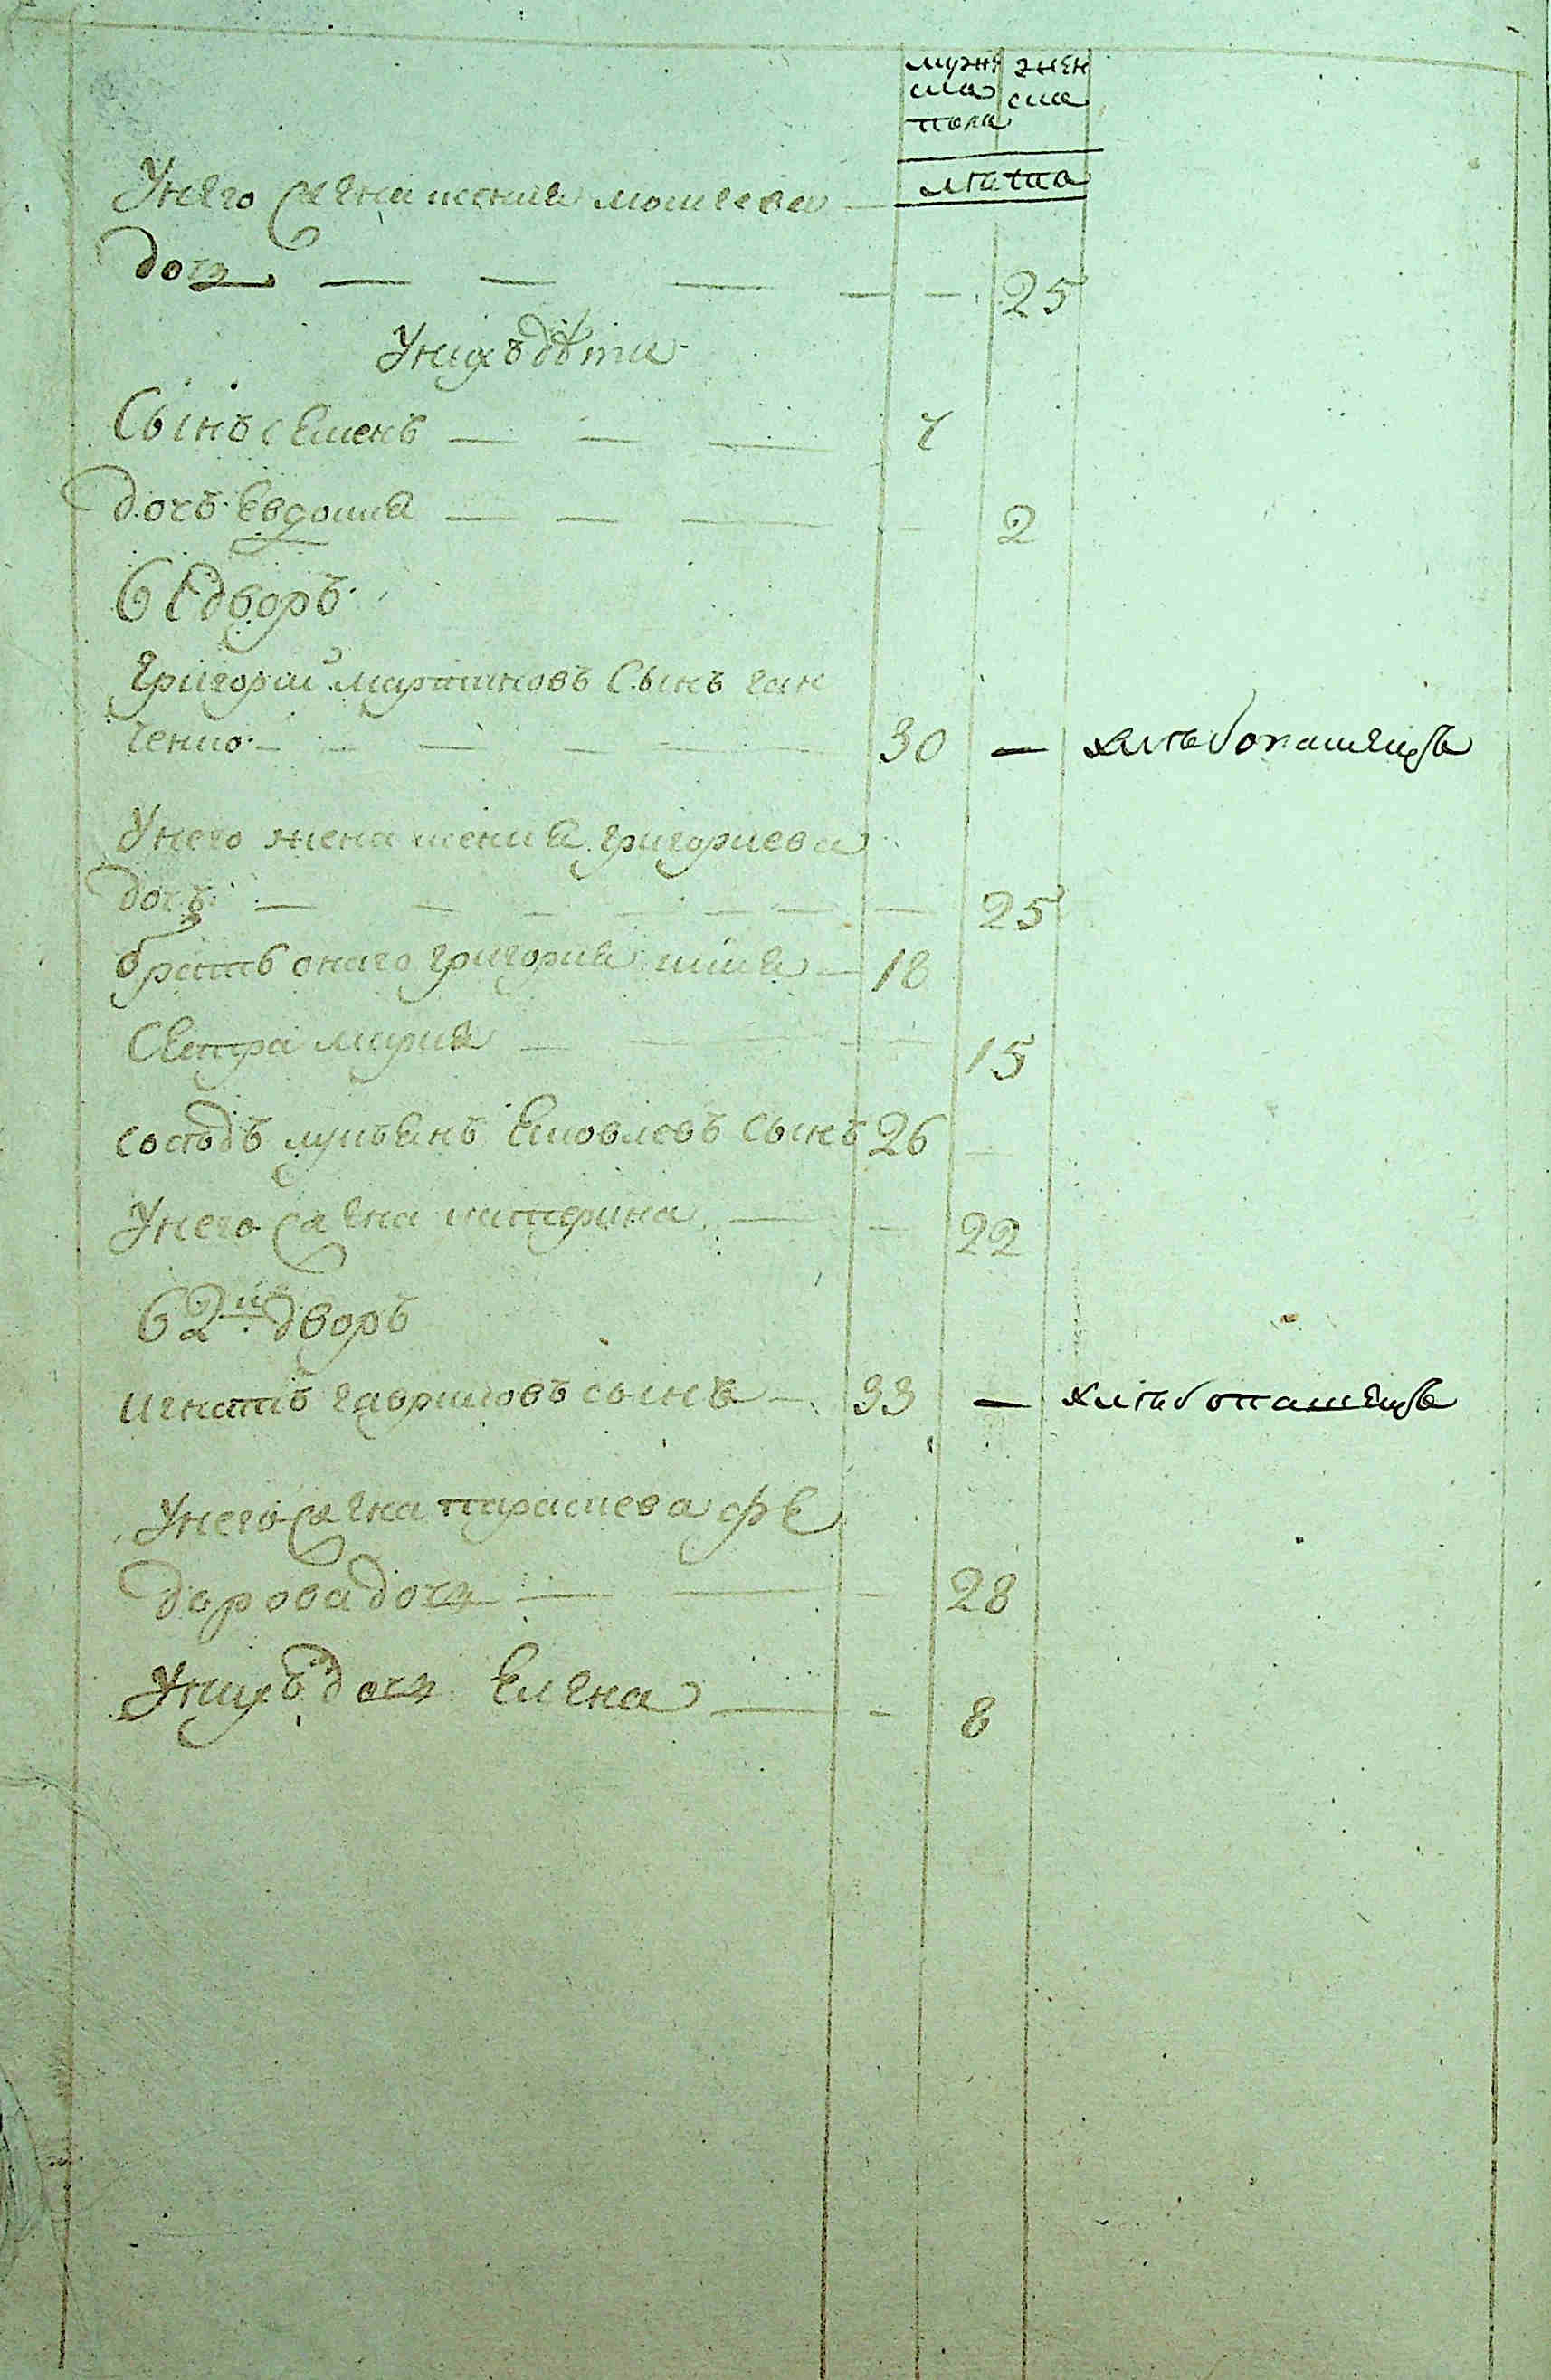 мужe жен
ска ска
пола
лѣта
Унего жена ксения мокеева
дочь — — — — — 25
Унихъ дѣти
Сынъ семенъ — — — 7
дочь Евдокия — — — — 2
61 дворъ
Григорей мартиновъ Сынъ ган
ченко — — — — — 30 — хлѣбопашецъ
Унего жена ксения григориева
дочь — — — — — — — 25
братъ онаго григория илия — 18
Сестра мария — — — — — 15
соседъ лукъянъ Яковлевъ сынъ 26 —
Унего жена катерина — — 22
62й дворъ
игнатъ гавриловъ сынъ — 33 — хлѣбопашецъ
Унего жена параскева фе
дорова дочь — — — 28
Унихъ дочь Елена — — 8